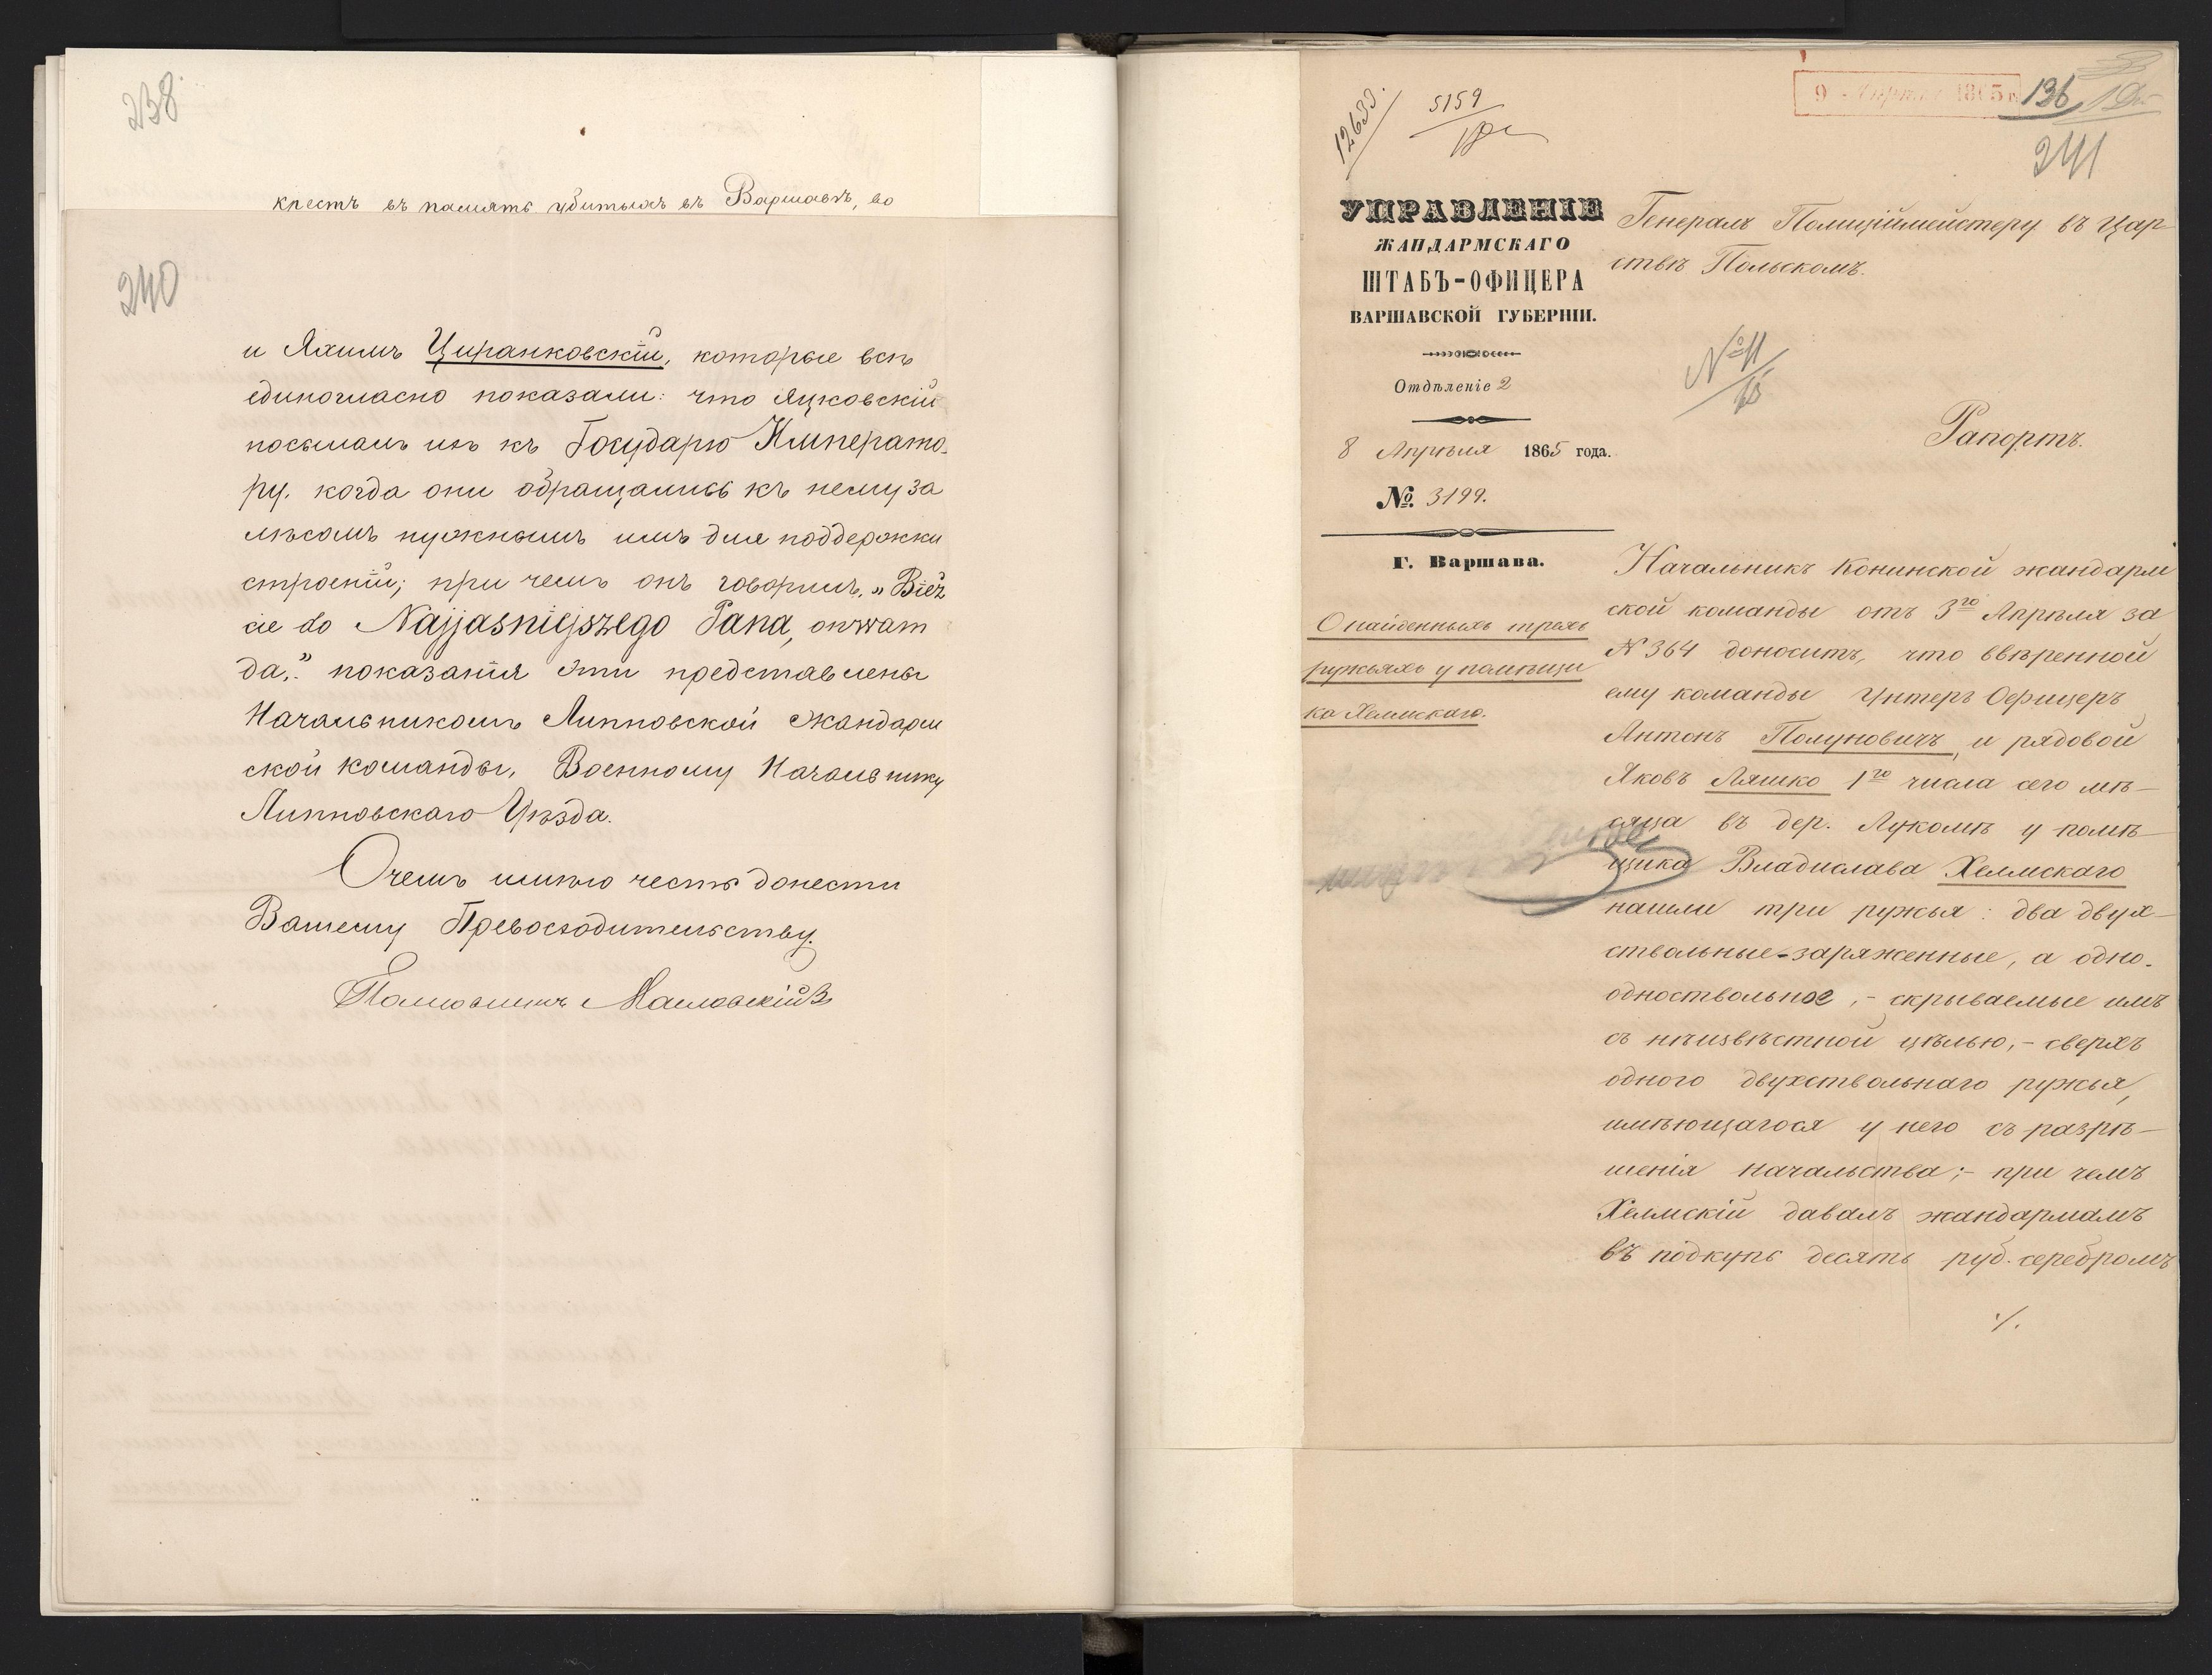 238
крестъ въ память убитыхъ въ Варшавѣ, во
240
и Яхимъ Циранковскій, которые всѣ
единогласно показали: что Яцковскій
посылалъ ихъ къ Государю Императо-
ру, когда они обращались къ нему за
лѣсомъ нужнымъ имъ для поддержки
строеній; при чемъ онъ говорилъ, „Bież
cie do Najjasniejszego Pana, on wam
da." показанія эти представлены
Начальникомъ Липновской Жандарм
ской команды, Военному Начальнику
Липновскаго Уѣзда.
Очемъ имѣю честь донести
Вашему Превосходительству.
Полковникъ
9 Апрѣля 1865 г.
136
241
12633.
5159
УПРАВЛЕНІЕ
ЖАНДАРМСКАГО
ШТАБЪ-ОФИЦЕРА
ВАРШАВСКОЙ ГУБЕРНІИ.
Отдѣленіе 2
8 Апрѣля 1865 года.
№ 3199.
Г. Варшава.
О найденныхъ трехъ
ружьяхъ у помѣщи
ка Хелмскаго.
Генералъ Полиціймейстеру въ Цар-
ствѣ Польскомъ.
№ 11
Рапортъ.
Начальникъ Конинской жандарм
ской команды отъ 3го Апрѣля за
N 364 доноситъ, что ввѣренной
ему команды Унтеръ Офицеръ
Антонъ Полуновичъ, и рядовой
Яковъ Ляшко 1го числа сего мѣ-
сяца въ дер. Лукомѣ у помѣ-
щика Владислава Хелмскаго
нашли три ружья: два двух-
ствольные-заряженные, а одно-
одноствольное, - скрываемые имъ
съ неизвѣстной цѣлью, - сверхъ
одного двухствольнаго ружья,
имѣющагося у него съ разрѣ-
шенія начальства; - при чемъ
Хелмскій давалъ жандармамъ
въ подкупъ десять руб. серебромъ
./.